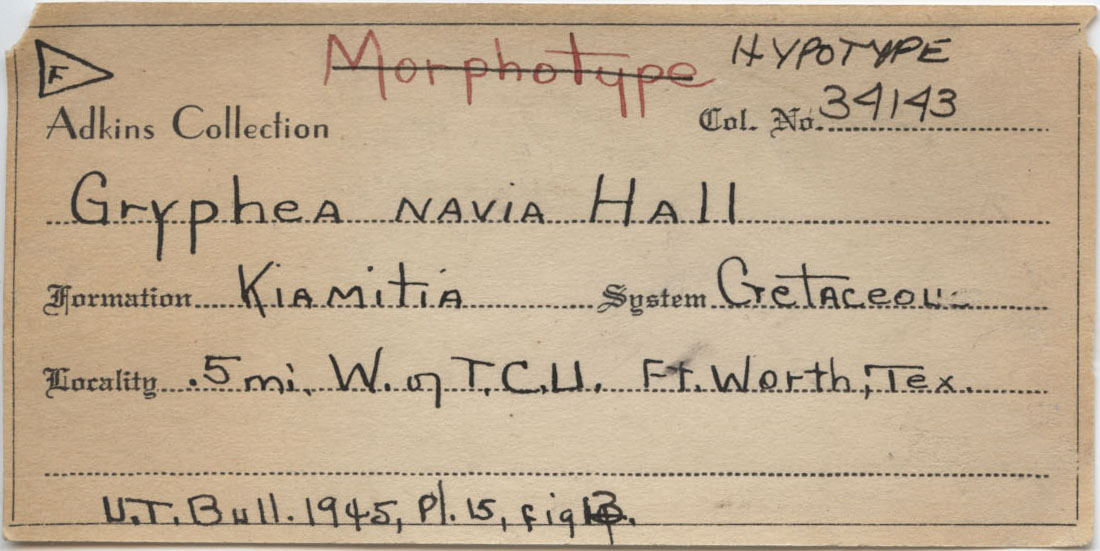 F
Morphotype HYPOTYPE
Adkins Collection Col. No. 34143
Gryphea navia Hall
Formation Kiamitia System Cretaceous
Locality .5 mi. W. of T.C.U. Ft. Worth, Tex.
U.T. Bull. 1945, Pl. 15, fig